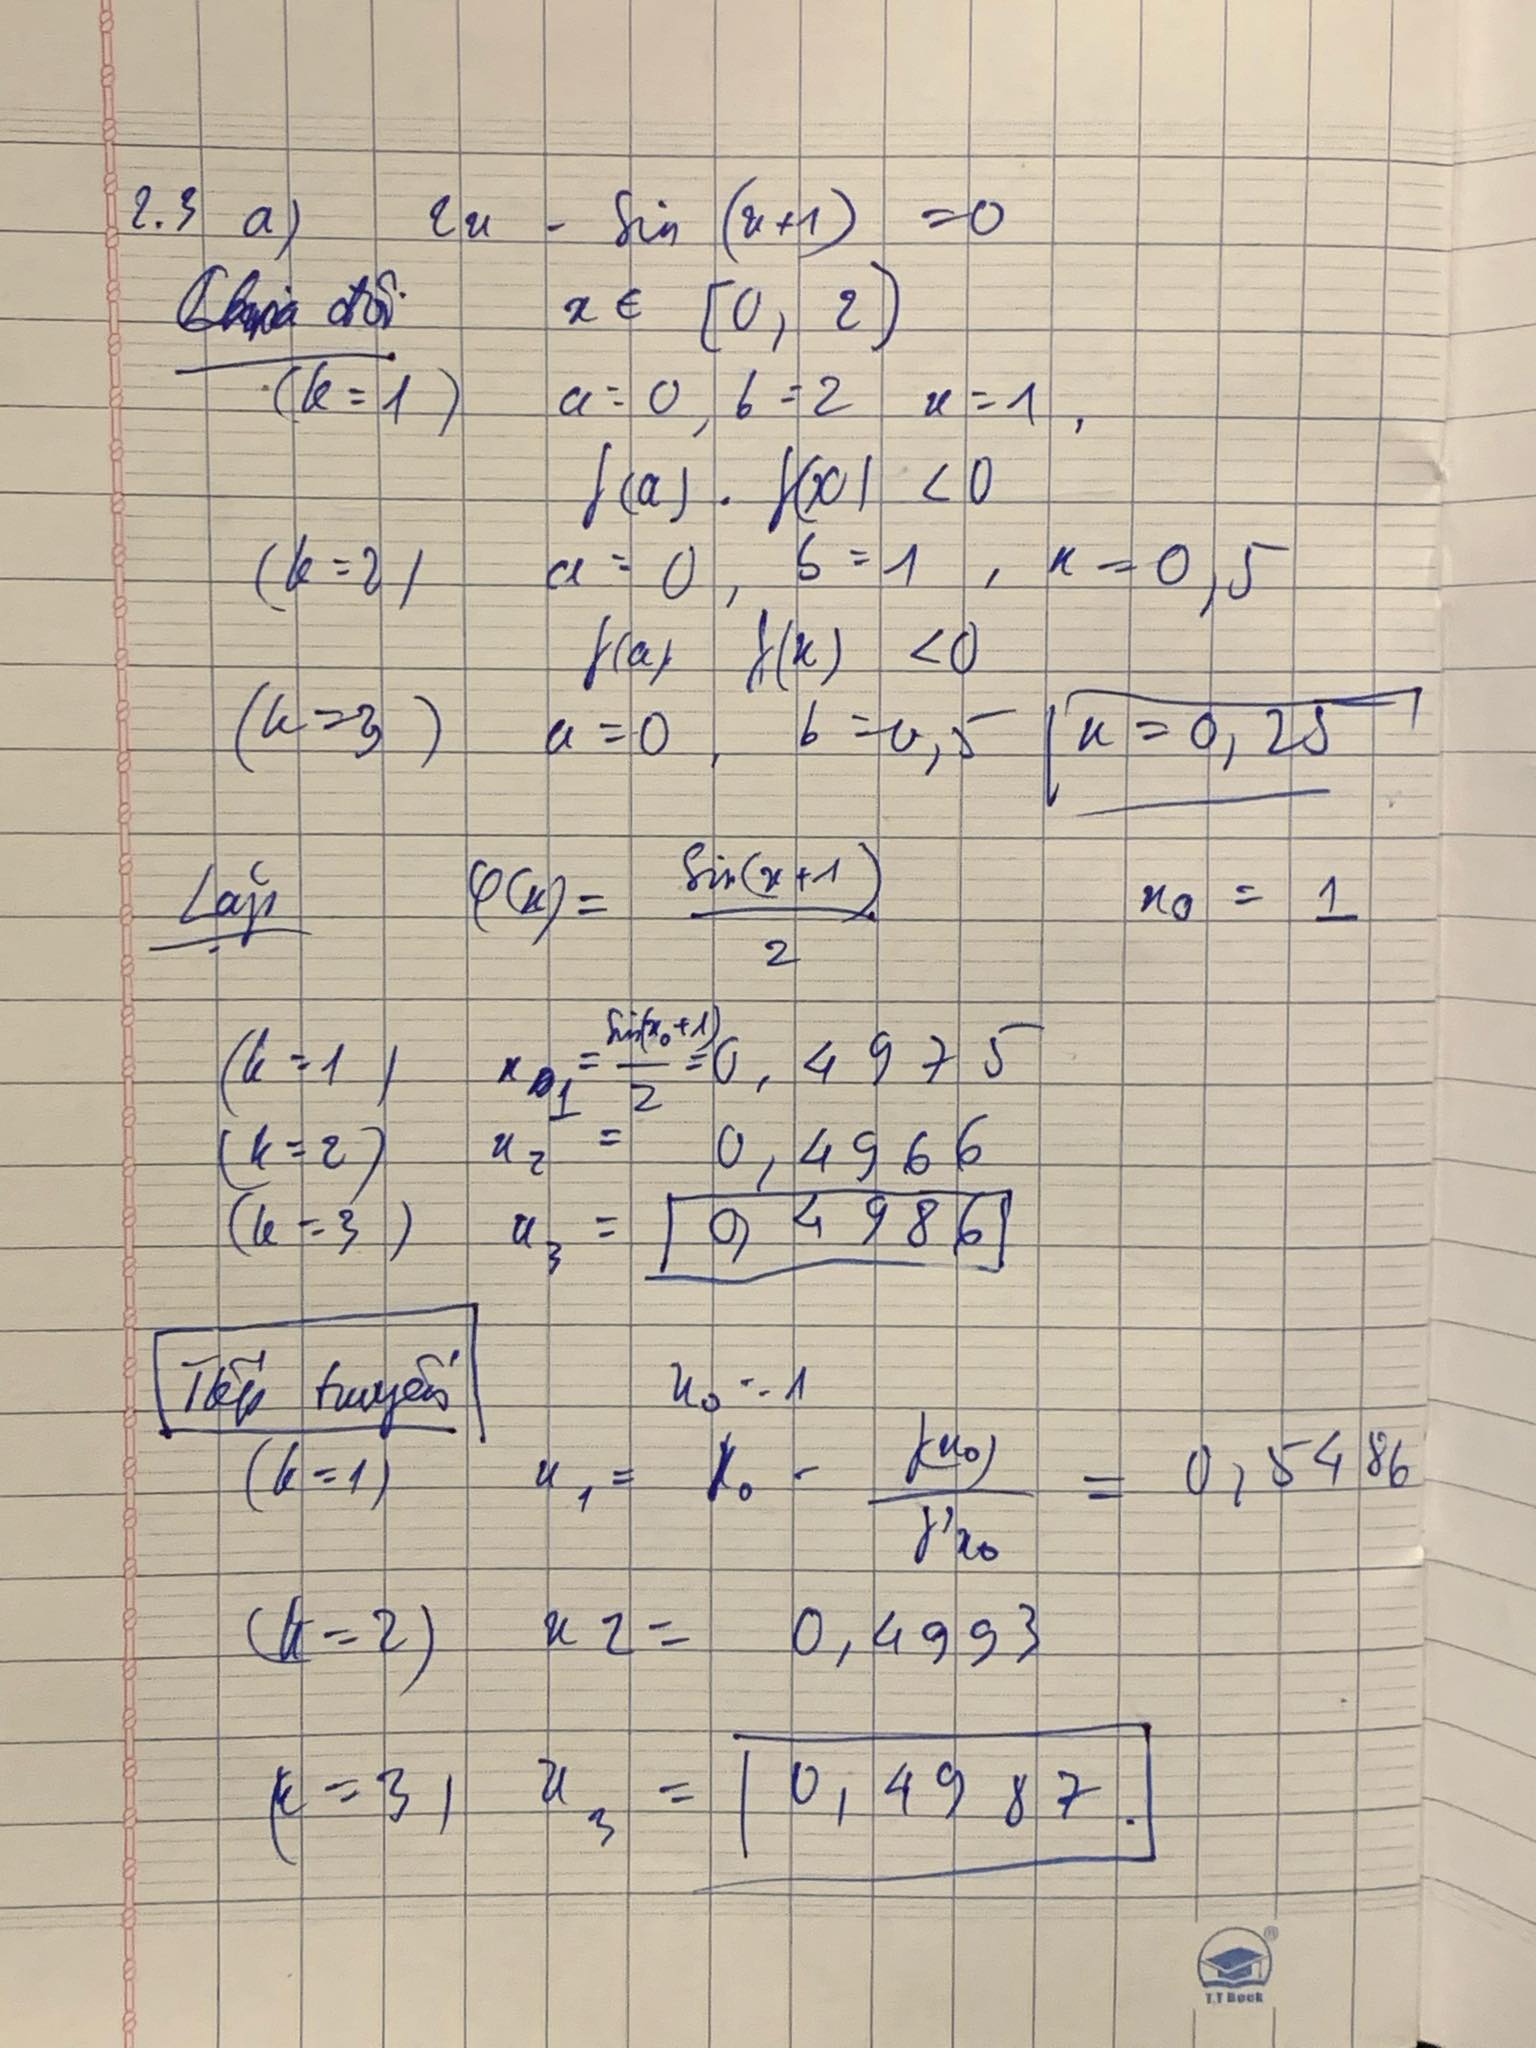 2.3 a) 2x - sin (x+1) = 0
Chia đôi x ∈ [0, 2]
(k=1) a=0, b=2 x=1,
f(a) . f(x) < 0
(k=2) a=0, b=1, x=0,5
f(a) f(x) < 0
(k=3) a=0, b=0,5 x=0,25
Lặp φ(x) = sin(x+1)/2 x₀ = 1
(k=1) x₁ = sin(x₀+1)/2 = 0,4975
(k=2) x₂ = 0,4966
(k=3) x₃ = 0,4986
Tiếp tuyến x₀ = 1
(k=1) x₁ = x₀ - f(x₀)/f'x₀ = 0,5486
(k=2) x2 = 0,4993
(k=3) x₃ = 0,4987.
T.T Book